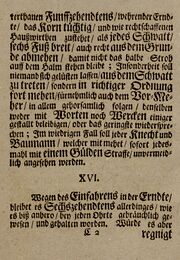 terthanen Fünffzehendens / wehrender Ernd-
te / das Korn tüchtig / und wie rechtschaffenen
Haußwirthen zustehet / als jedes Schwatt /
sechs Fuß breit / auch recht aus dem Grun-
de abmehen / damit nicht das halbe Stroh
auf dem Saam stehen bleibe: Insonderheit soll
niemand sich gelüsten lassen / aus dem Schwatt
zu treten / sondern in richtiger Ordnung
fort mehen / fürnehmlich auch dem Vor-Me-
her / in allem gehorsamlich folgen / denselben
weder mit Worten noch Wercken einiger
gestallt beleidigen / oder das geringste wiederspre-
chen; Im wiedrigen Fall soll jeder Knecht und
Baumann / welcher mit mehet / sofort jedes-
mahl mit einem Gülden Straffe / unvermeid-
lich angesehen werden.
XVI.
Wegen des Einfahrens in der Erndte /
bleibet es Sechszehendens allerdinges / wie
es biß anhero / bey jedem Orthe gebräuchlich ge-
wesen / und gehalten worden. Würde es aber
C 2 regnigt